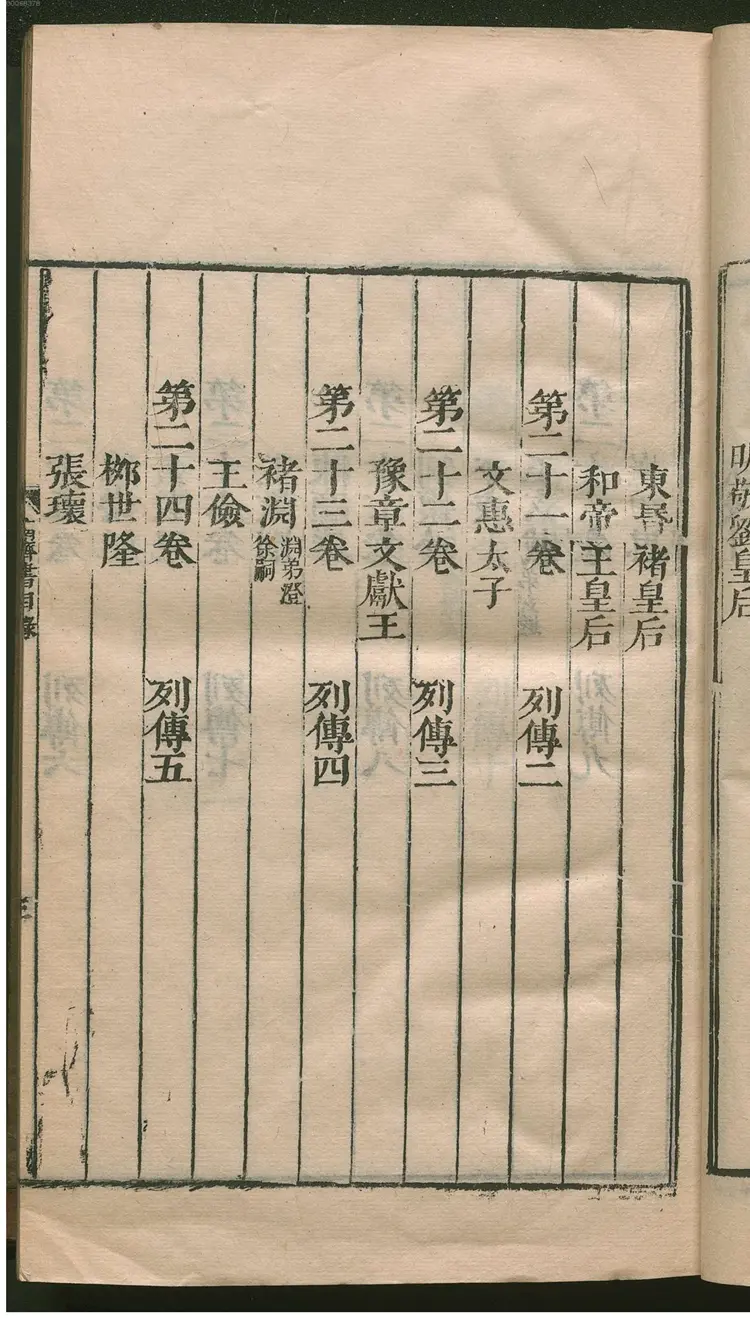 明敬劉皇后
東昏褚皇后
和帝王皇后
第二十一卷 列傳二
文惠太子
第二十二卷 列傳三
豫章文獻王
第二十三卷 列傳四
褚淵 淵弟澄 徐嗣
王儉
第二十四卷 列傳五
柳世隆
張瓌
南齊書目錄
三